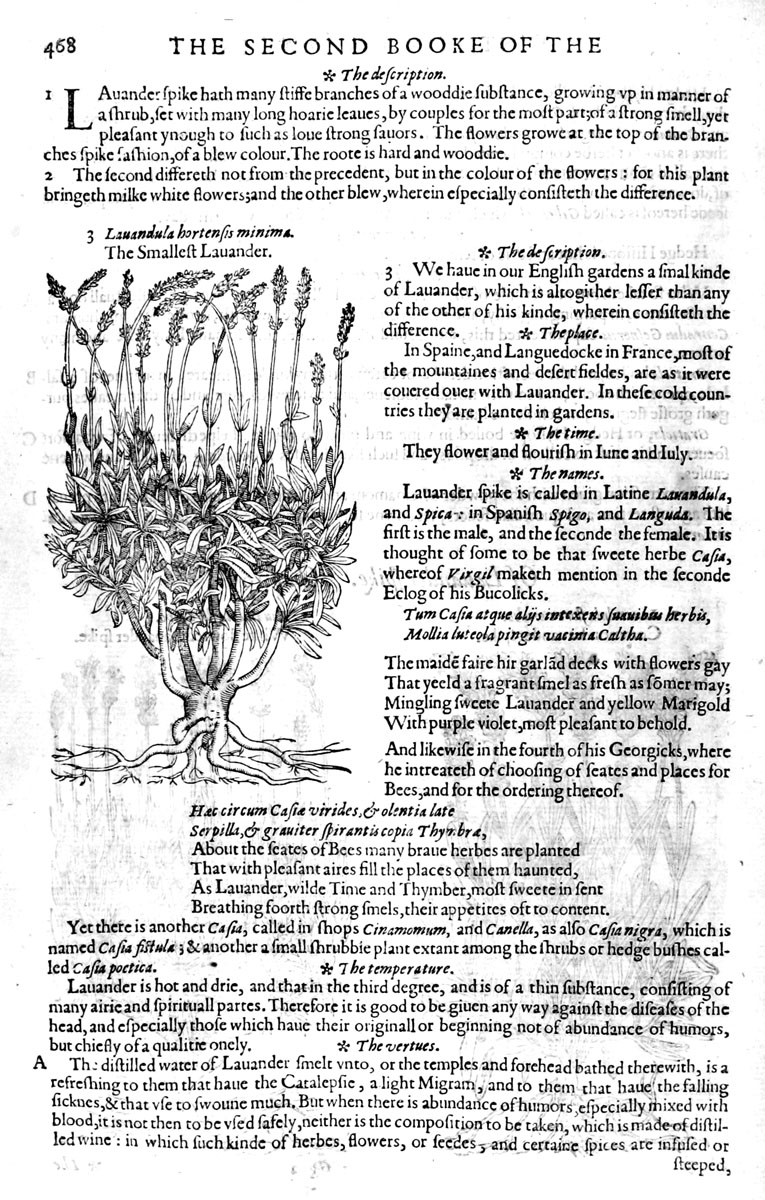 468 THE SECOND BOOKE OF THE
* The deſcription.
1 LAuander ſpike hath many ſtiffe branches of a wooddie ſubſtance, growing vp in manner of
a ſhrub, ſet with many long hoarie leaues, by couples for the moſt part, of a ſtrong ſmell, yet
pleaſant ynough to ſuch as loue ſtrong ſauors. The flowers growe at the top of the bran-
ches ſpike faſhion, of a blew colour. The roote is hard and wooddie.
2 The ſecond differeth not from the precedent, but in the colour of the flowers : for this plant
bringeth milke white flowers; and the other blew, wherein eſpecially conſiſteth the difference.
3 Lauandula hortenſis minima.
The Smalleſt Lauander.
* The deſcription.
3 We haue in our Engliſh gardens a ſmal kinde
of Lauander, which is altogither leſſer than any
of the other of his kinde, wherein conſiſteth the
difference. * The place.
In Spaine, and Languedocke in France, moſt of
the mountaines and deſert fieldes, are as it were
couered ouer with Lauander. In theſe cold coun-
tries they are planted in gardens.
* The time.
They flower and flouriſh in Iune and Iuly.
* The names.
Lauander ſpike is called in Latine Lauandula,
and Spica : in Spaniſh Spigo, and Languda. The
firſt is the male, and the ſeconde the female. It is
thought of ſome to be that ſweete herbe Caſia,
whereof Virgil maketh mention in the ſeconde
Eclog of his Bucolicks.
Tum Caſia atque alijs intexens ſuauibus herbis,
Mollia luteola pingit vacinia Caltha.
The maidē faire hir garlād decks with flowers gay
That yeeld a fragrant ſmel as freſh as sōmer may;
Mingling ſweete Lauander and yellow Marigold
With purple violet, moſt pleaſant to behold.
And likewiſe in the fourth of his Georgicks, where
he intreateth of chooſing of ſeates and places for
Bees, and for the ordering thereof.
Hæc circum Caſiæ virides, & olentia late
Serpilla, & grauiter ſpirantis copia Thymbræ,
About the ſeates of Bees many braue herbes are planted
That with pleaſant aires fill the places of them haunted,
As Lauander, wilde Time and Thymber, moſt ſweete in ſent
Breathing foorth ſtrong ſmels, their appetites oft to content.
Yet there is another Caſia, called in ſhops Cinamomum, and Canella, as alſo Caſia nigra, which is
named Caſia fiſtula ; & another a ſmall ſhrubbie plant extant among the ſhrubs or hedge buſhes cal-
led Caſia poetica. * The temperature.
Lauander is hot and drie, and that in the third degree, and is of a thin ſubſtance, conſiſting of
many airie and ſpirituall partes. Therefore it is good to be giuen any way againſt the diſeaſes of the
head, and eſpecially thoſe which haue their originall or beginning not of abundance of humors,
but chiefly of a qualitie onely. * The vertues.
A The diſtilled water of Lauander ſmelt vnto, or the temples and forehead bathed therewith, is a
refreſhing to them that haue the Catalepſie, a light Migram, and to them that haue the falling
ſicknes, & that vſe to ſwoune much. But when there is abundance of humors, eſpecially mixed with
blood, it is not then to be vſed ſafely, neither is the compoſition to be taken, which is made of diſtil-
led wine : in which ſuch kinde of herbes, flowers, or ſeedes, and certaine ſpices are infuſed or
ſteeped,